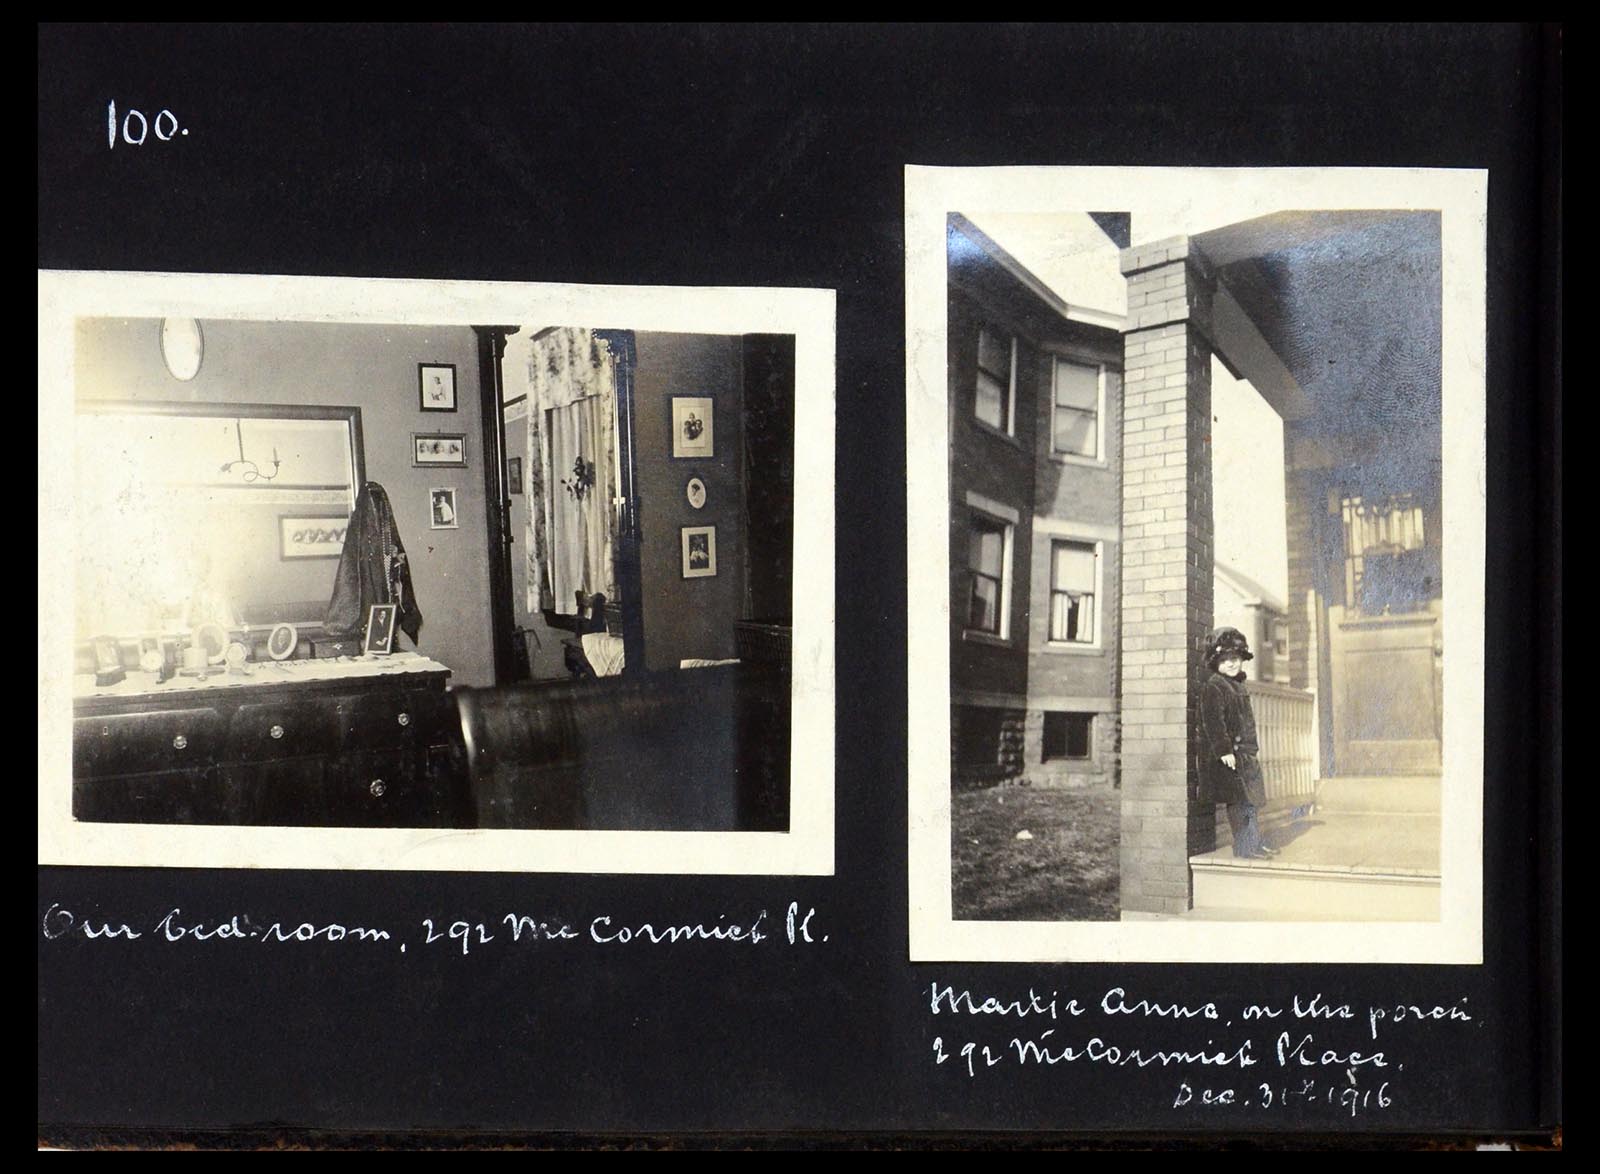 100.
Our bed-room, 292 McCormick Pl.
Martie Anna, on the porch,
292 McCormick Place.
Dec. 31st 1916